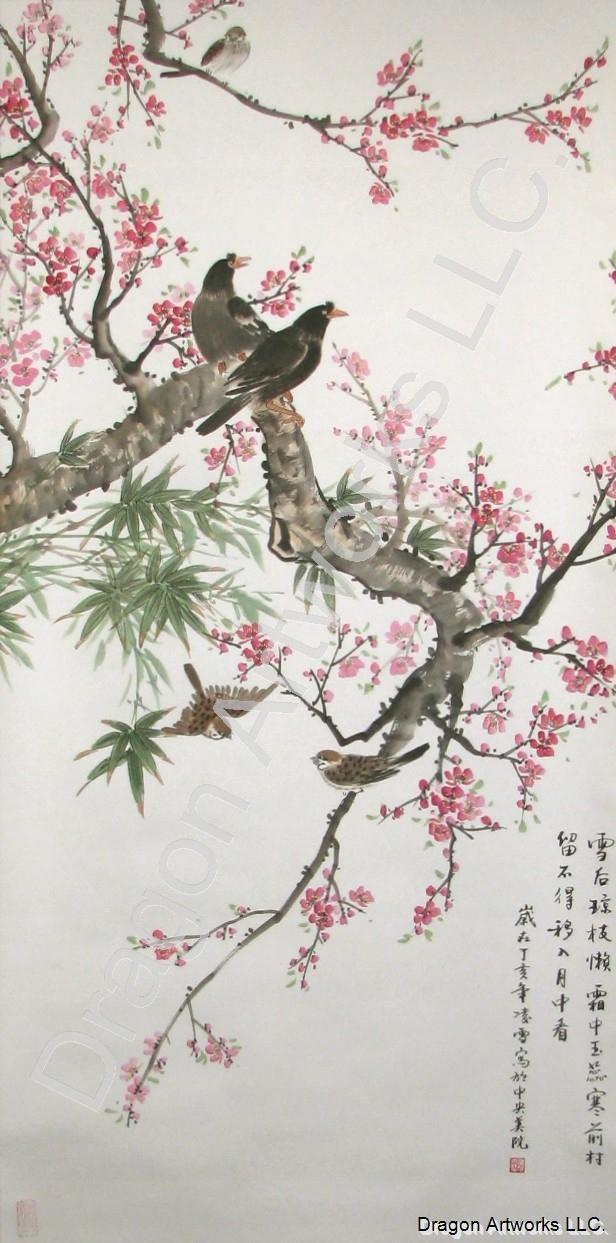 雪后琼枝懒霜中玉蕊寒前村
留不得移入月中看
歲在丁亥年凌雪寫於中央美院
Dragon Artworks LLC.
Dragon Artworks LLC.